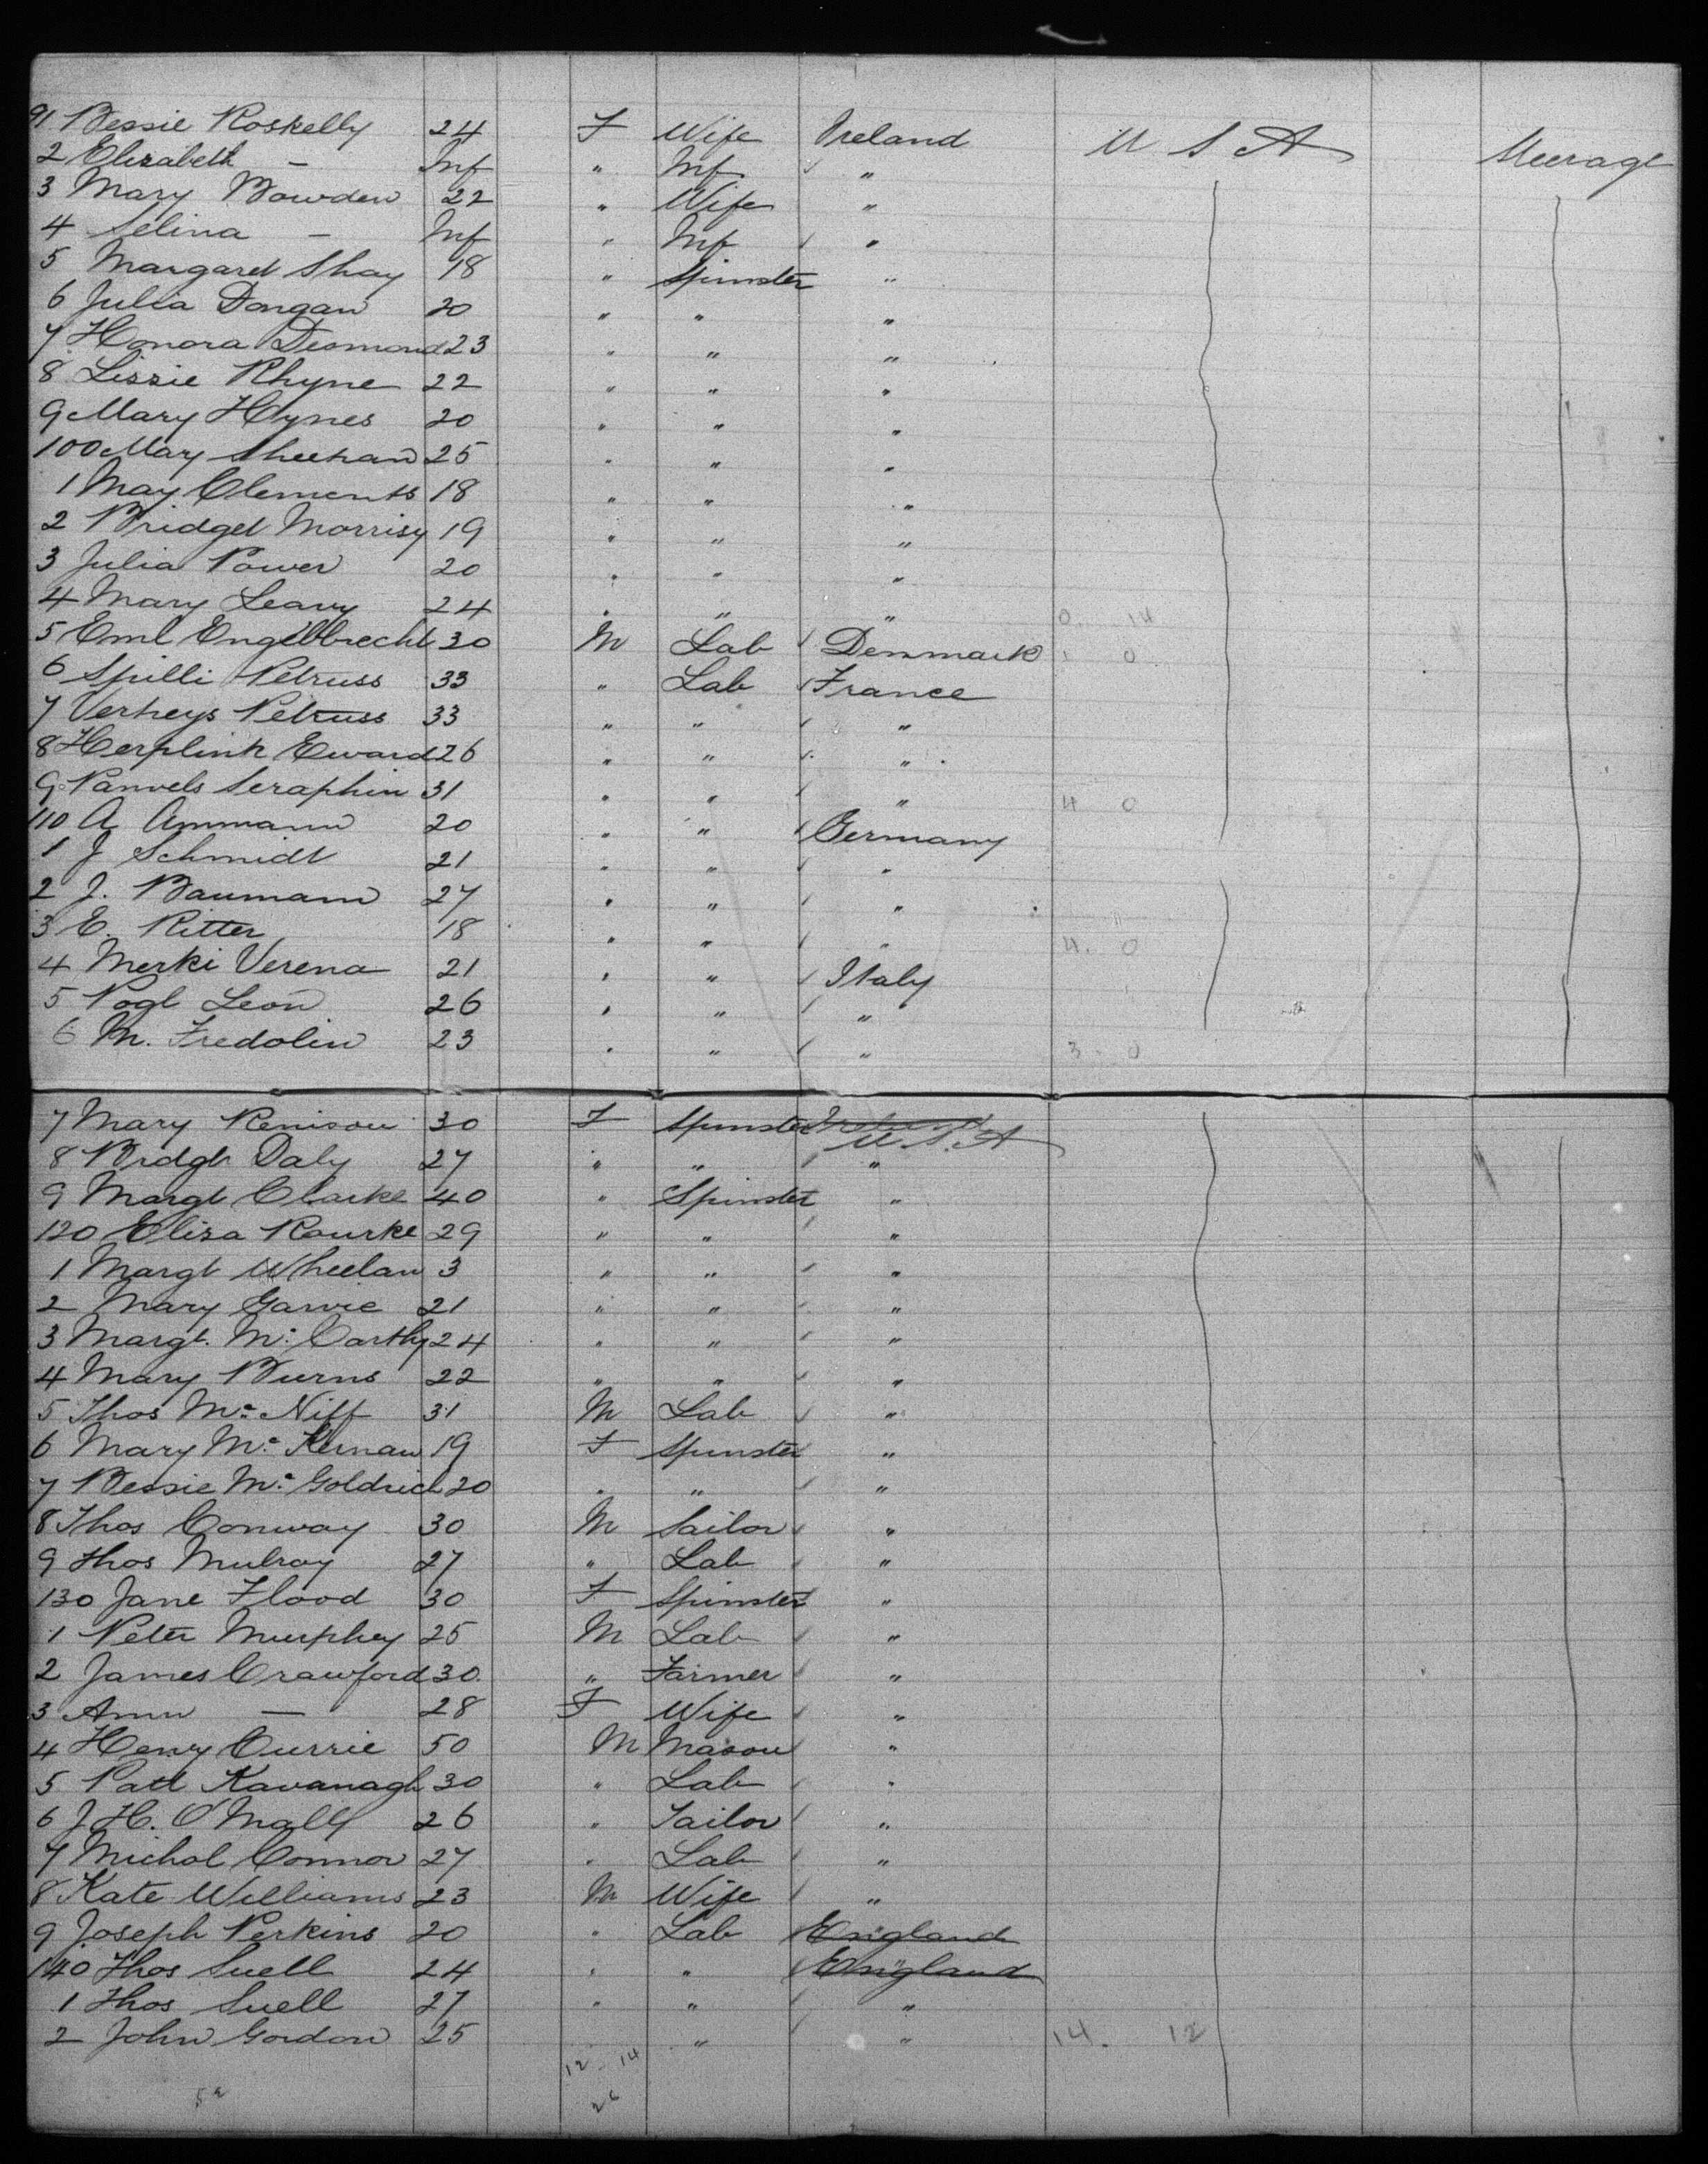 91 Bessie Roskelly 24 F Wife Ireland U S A Steerage
2 Elizabeth — Inf " Inf "
3 Mary Bowden 22 " Wife "
4 Selina — Inf " Inf "
5 Margaret Shay 18 " Spinster "
6 Julia Dongan 20 " " "
7 Honora Desmond 23 " " "
8 Lizzie Rhyne 22 " " "
9 Mary Hynes 20 " " "
100 Mary Sheehan 25 " " "
1 May Clements 18 " " "
2 Bridget Morrisy 19 " " "
3 Julia Power 20 " " "
4 Mary Leavy 24 " " " 0. 14
5 Eml Engelbrecht 30 M Lab Denmark 1 0
6 Spilli Petruss 33 " Lab France
7 Verheys Petruss 33 " " "
8 Herplink Eward 26 " " "
9 Panvels Seraphin 31 " " " 4 0
110 A Ammann 20 " " Germany
1 J Schmidt 21 " " "
2 J. Baumann 27 " " "
3 E. Ritter 18 " " " 4. 0
4 Merki Verena 21 " " Italy
5 Pogl Leon 26 " " "
6 M. Fredolin 23 " " " 3 - 0
7 Mary Renison 30 F Spinster U.S.A
8 Bridgt Daly 27 " " "
9 Margt Clarke 40 " Spinster "
120 Eliza Rourke 29 " " "
1 Margt Wheelan 3 " " "
2 Mary Garvie 21 " " "
3 Margt. Mc Carthy 24 " " "
4 Mary Burns 22 " " "
5 Thos Mc Niff 31 M Lab "
6 Mary Mc Kernan 19 F Spinster "
7 Bessie Mc Goldrick 20 " " "
8 Thos Conway 30 M Sailor "
9 Thos Mulroy 27 " Lab "
130 Jane Flood 30 F Spinster "
1 Peter Murphey 25 M Lab "
2 James Crawford 30 " Farmer "
3 Ann — 28 F Wife "
4 Henry Currie 50 M Mason "
5 Patt Kavanagh 30 " Lab "
6 J H. O'Mally 26 " Tailor "
7 Michal Connor 27 " Lab "
8 Kate Williams 23 M Wife "
9 Joseph Perkins 20 " Lab England
140 Thos Suell 24 " " England
1 Thos Suell 27 " " "
2 John Gordon 25 " " 14. 12
12 - 14
26